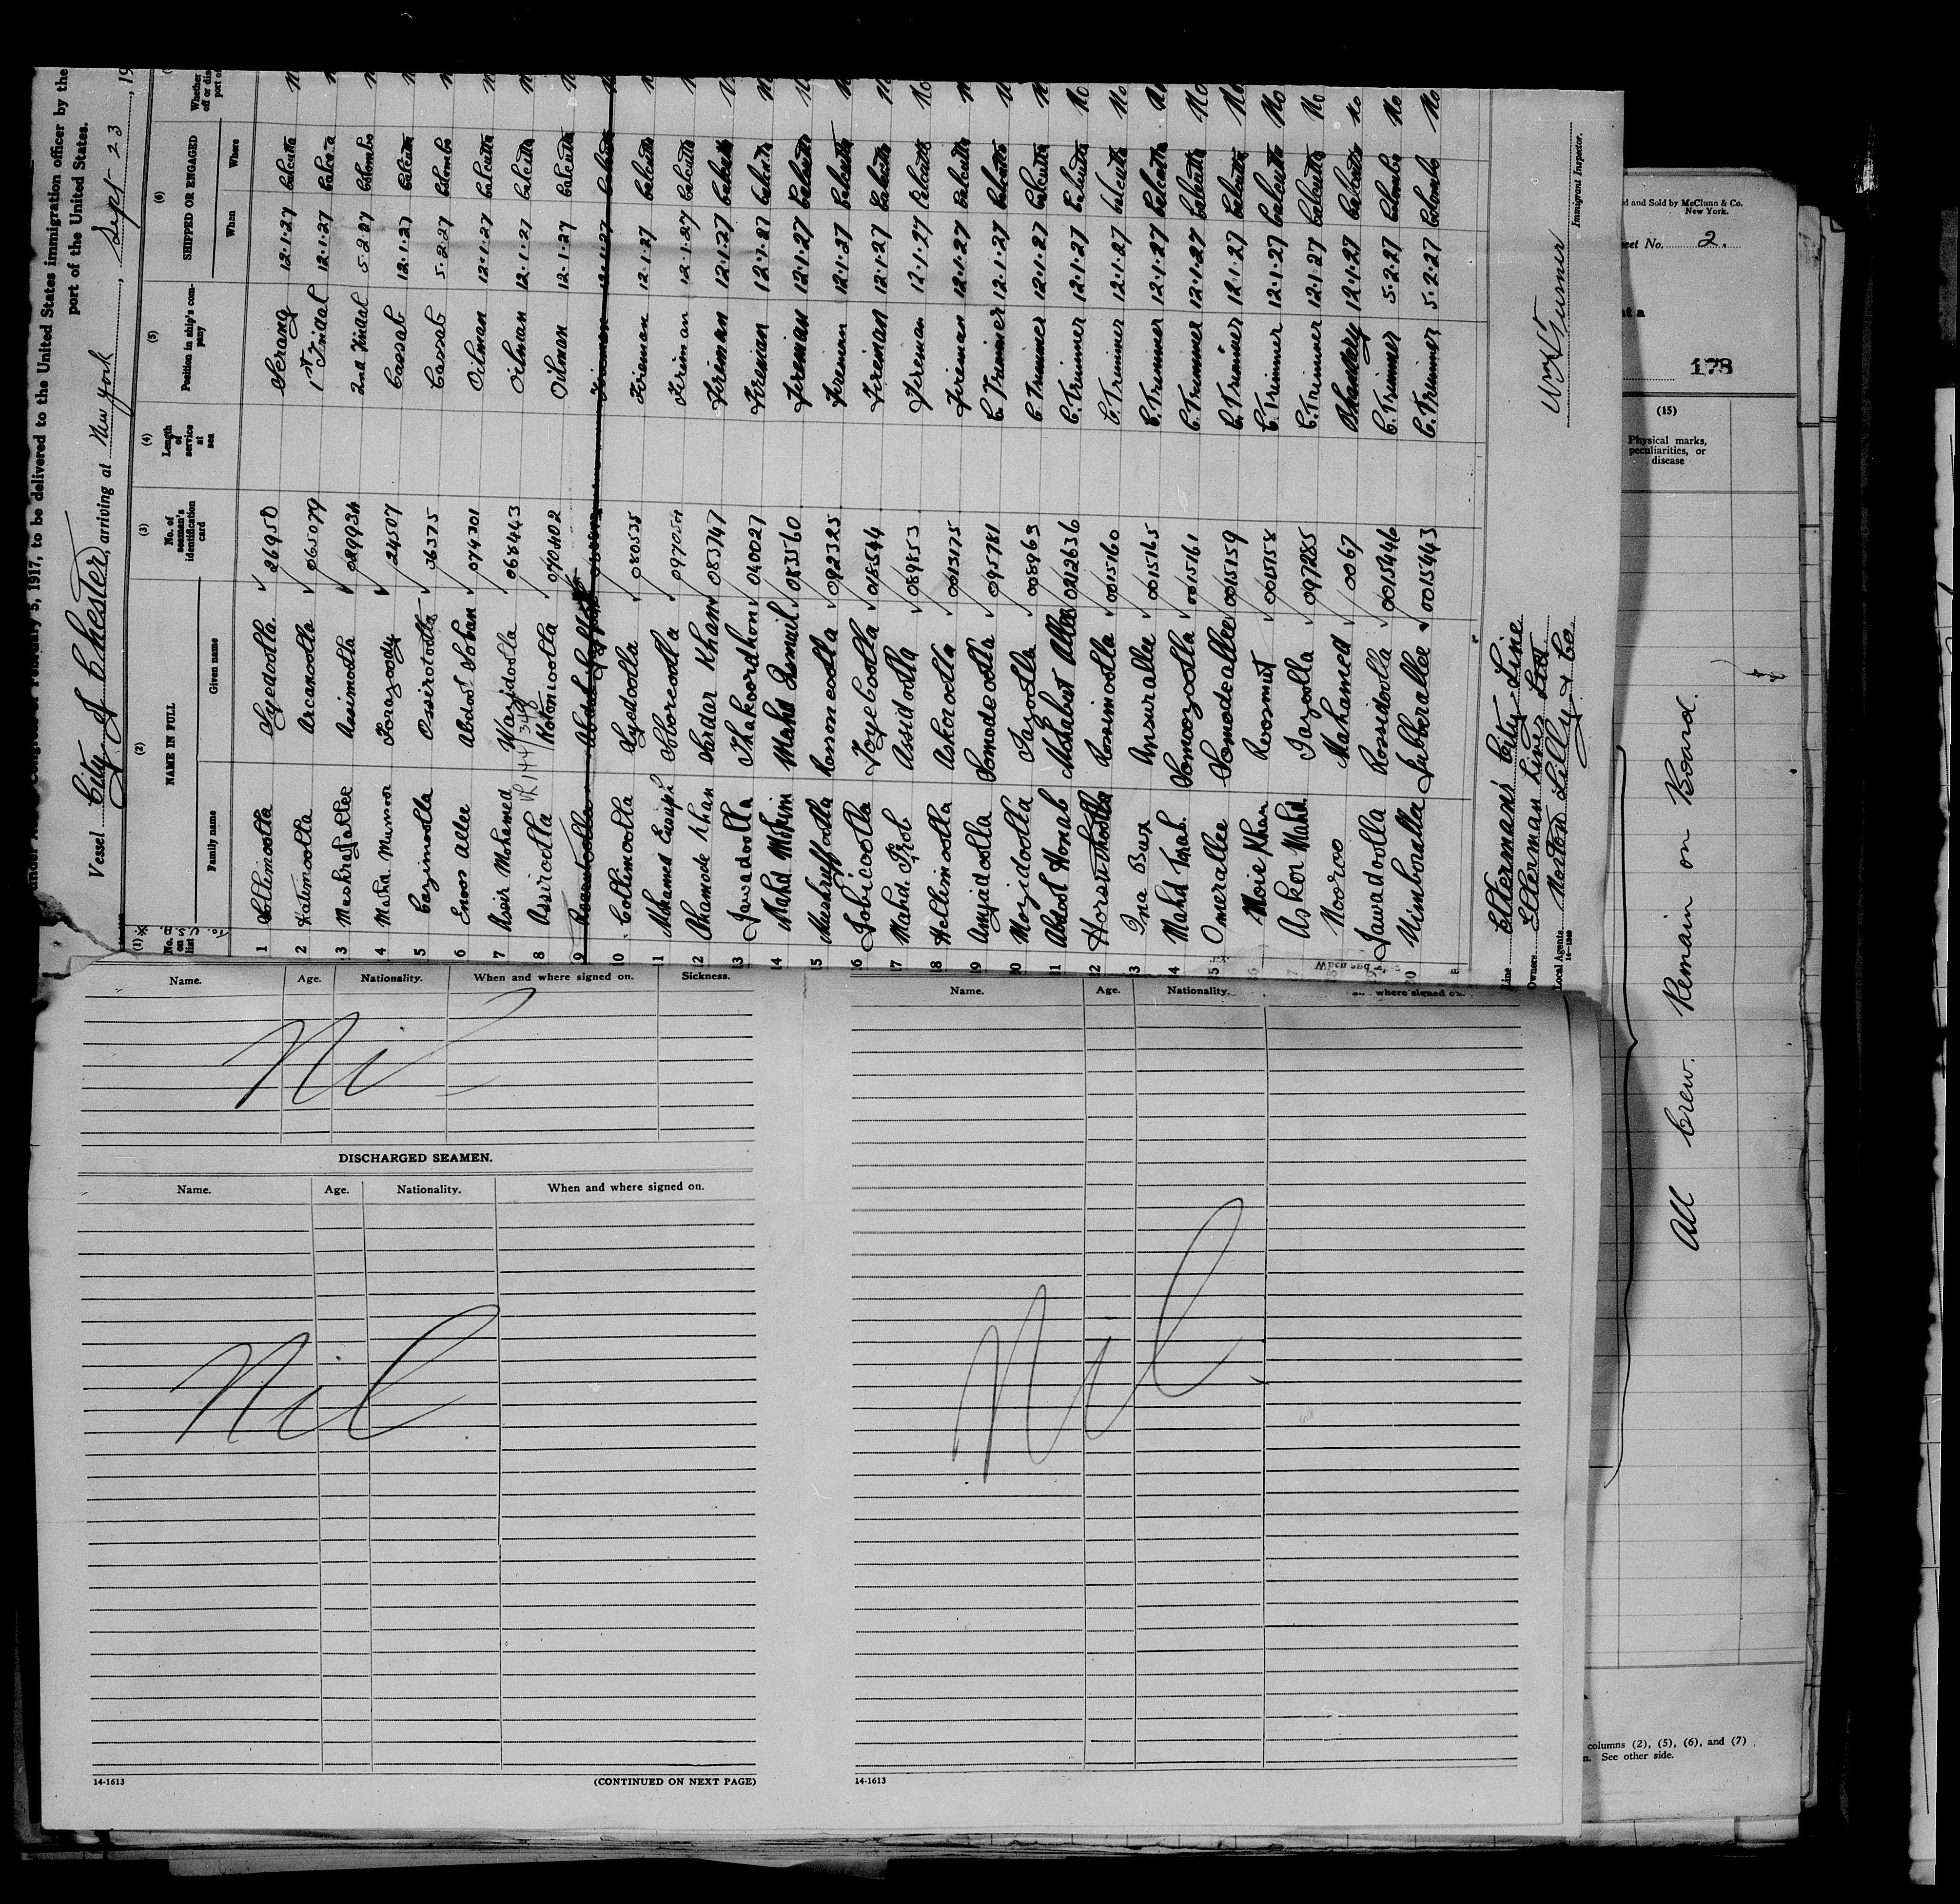 under Act of Congress of February 5, 1917, to be delivered to the United States immigration officer by the
port of the United States.
Vessel City of Chester, arriving at New York, Sept 23, 19
(1) (2) (3) (4) (5) (6)
No. on list NAME IN FULL No. of seaman's identification card Length of service at sea Position in ship's company SHIPPED OR ENGAGED Whether
To U.S.A.
Family name Given name When Where
1 Sollimoolla Syedoolla. 26950 Serang 12.1.27 Calcutta
2 Kalimoolla Arcanoolla 065079 1st Tindal 12.1.27 Calcutta
3 Meshrafallee Assimoolla 029934 2nd Tindal 5.2.27 Colombo
4 Forazoody 24507 Cassab 12.1.27 Calcutta
5 Cazimoolla Ossirotoolla 36375 Cassab 5.2.27 Colombo
6 Enos Allee Abdool Soban 074301 Oilman 12.1.27 Calcutta
7 Assir Mohamed Wazidoolla 068443 Oilman 12.1.27 Calcutta
8 Assiroolla Motonioolla 070402 Oilman 12.1.27 Calcutta
9 Fireman 12.1.27 Calcutta
10 Collimoolla Syedoolla 080535 Fireman 12.1.27 Calcutta
11 Mohamed Shoreoolla Fireman 12.1.27 Calcutta
12 Ahamode Khan Sardar Khan 083747 Fireman 12.1.27 Calcutta
13 Jawadoolla Thakoordhon 040027 Fireman 12.1.27 Calcutta
14 Mahd Mokim Mahd Ismail 083560 Fireman 12.1.27 Calcutta
15 Mushruffoolla Rossoneoolla 092325 Fireman 12.1.27 Calcutta
16 Sobicoolla Toyeboolla 018544 Fireman 12.1.27 Calcutta
17 Mahd. Prob Assidoolla 089853 Fireman 12.1.27 Calcutta No
18 Hellimoolla Askoroolla 0015175 Fireman 12.1.27 Calcutta
19 Amjidoolla Somodeoolla 095781 C. Trimmer 12.1.27 Calcutta
20 Mozidoolla Tazoolla 008963 C. Trimmer 12.1.27 Calcutta
21 Abdool Honab Mohabut Allee 0212636 C. Trimmer 12.1.27 Calcutta No
22 Rosimoolla 0015160 C. Trimmer 12.1.27 Calcutta No
23 Ina Bux Ansurallee 0015165 C. Trimmer 12.1.27 Calcutta No
24 Mahd Trab. Somoozoolla 0015161 C. Trimmer 12.1.27 Calcutta No
25 Omerallee Somodeallee 0015159 C. Trimmer 12.1.27 Calcutta No
Moie Khan Roosmut 0015158 C. Trimmer 12.1.27 Calcutta No
Askor Mahd. Tazoolla 097285 C. Trimmer 12.1.27 Calcutta No
Nooroo Mahamed 0067 Bhandary 12.1.27 Calcutta No
Jawadoolla Rossidoolla 0015446 C. Trimmer 5.2.27 Colombo No
Nimboralla Jubberallee 0015443 C. Trimmer 5.2.27 Colombo No
Line Ellerman's City Line
Owners Ellerman Lines Ltd
Local Agents Norton Lilly & Co
Immigrant Inspector.
d and Sold by McClunn & Co.
New York.
eet No. 2.
178
(15)
Physical marks, peculiarities, or disease
All Crew. Remain on Board.
columns (2), (5), (6), and (7)
See other side.
Name. Age. Nationality. When and where signed on. Sickness.
Nil
DISCHARGED SEAMEN.
Name. Age. Nationality. When and where signed on.
Nil
14-1613 (CONTINUED ON NEXT PAGE)
Name. Age. Nationality. where signed on.
Nil
14-1613